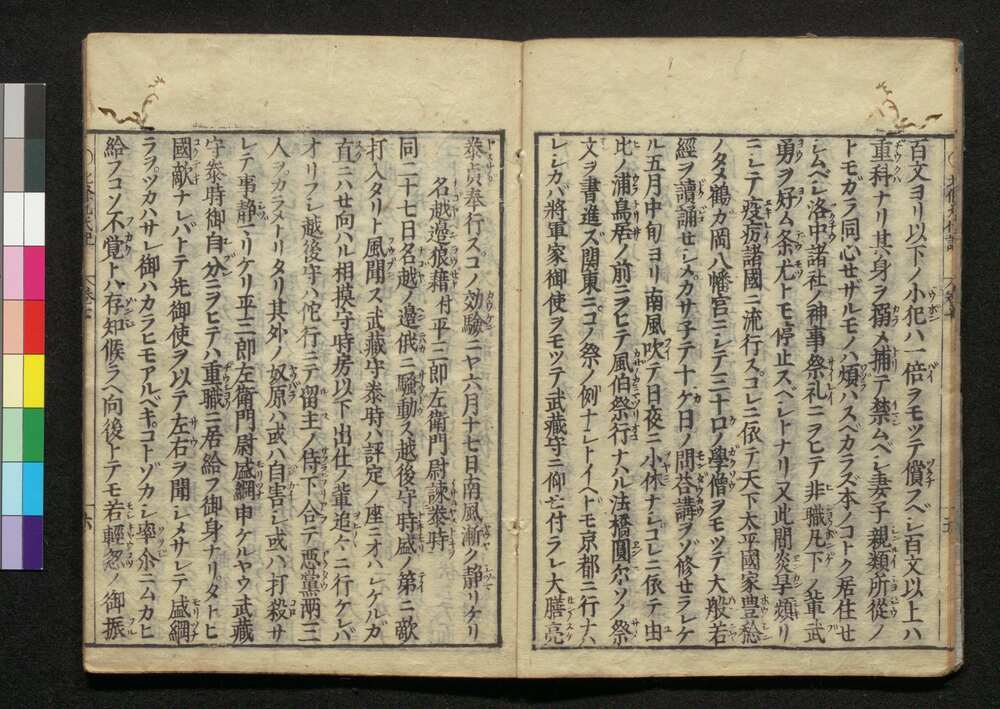 百文ヨリ以下ノ小犯ハ一倍ヲモツテ償スベシ百文以上ハ
重科ナリ其身ヲ搦メ捕テ禁ムベシ妻子親類所從ノ
トモガラ同心セザルモノハ煩ハスベカラズ本ノコトク居住セ
シムベシ洛中諸社ノ神事祭礼ニヲヒテ非職凡下ノ輩武
勇ヲ好ム条尤トモ停止スベシトナリ又此間炎旱頻リ
ニシテ疫疠諸國ニ流行スコレニ依テ天下太平國家豊稔
ノタメ鶴カ岡八幡宮ニシテ三十口ノ學僧ヲモツテ大般若
經ヲ讀誦セシメカサ子テ十ケ日ノ問荅講ヲゾ修セラレケ
ル五月中旬ヨリ南風吹テ日夜ニ小休ナシコレニ依テ由
比ノ浦鳥居ノ前ニヲヒテ風伯祭行ナハル法橋圓尓ソノ祭
文ヲ書進ズ関東ニコノ祭ノ例ナシトイヘドモ京都ニ行ナハ
レシカバ將軍家御使ヲモツテ武藏守ニ仰セ付ラレ大膳亮
泰貞奉行スコノ効驗ニヤ六月十七日南風漸ク靜リケリ
名越邉狼藉付平三郎左衛門尉諫泰時
同二十七日名越ノ邉俄ニ騒動ス越後守時盛ノ第ニ敵
打入タリト風聞ス武藏守泰時ハ評定ノ座ニオハシケルガ
直ニハセ向ハル相摸守時房以下出仕ノ輩追々ニ行ケレバ
オリフシ越後守ハ他行ニテ留主ノ侍下合テ悪黨兩三
人ヲカラメトリタリ其外ノ奴原ハ或ハ自害シ或ハ打殺サ
レテ事静ニリケリ平三郎左衛門尉盛綱申ケルヤウ武藏
守泰時御自分ニヲヒテハ重職ニ居給フ御身ナリタトヒ
國敵ナレバトテ先御使ヲ以テ左右ヲ聞シメサレテ盛綱
ラヲツカハサレ御ハカラヒモアルベキコトゾカシ率尓ニムカヒ
給フコソ不覺トハ存知候ラヘ向後トテモ若輕忽ノ御振